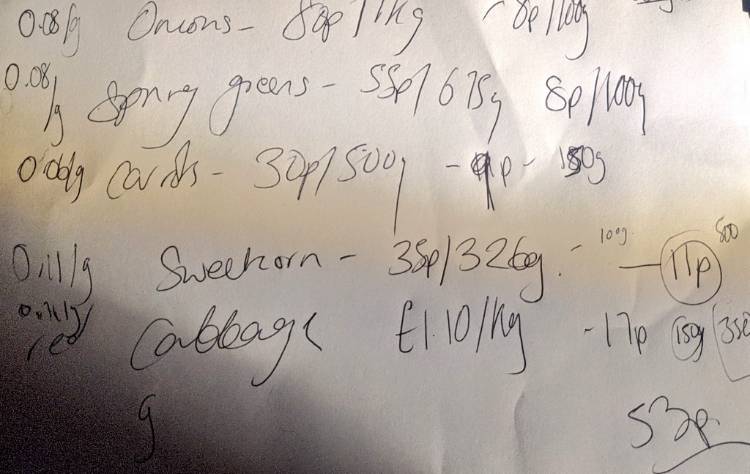 0.08/g Onions - 80p/1kg - 8p/100g
0.08/g Spring greens - 55p/675g 8p/100g
0.06/g Carrots - 30p/500g - 9p - 150g
0.11/g Sweetcorn - 35p/326g - 100g - 11p 500
0.11g/ red Cabbage £1.10/kg - 17p 150g (350
g
53p